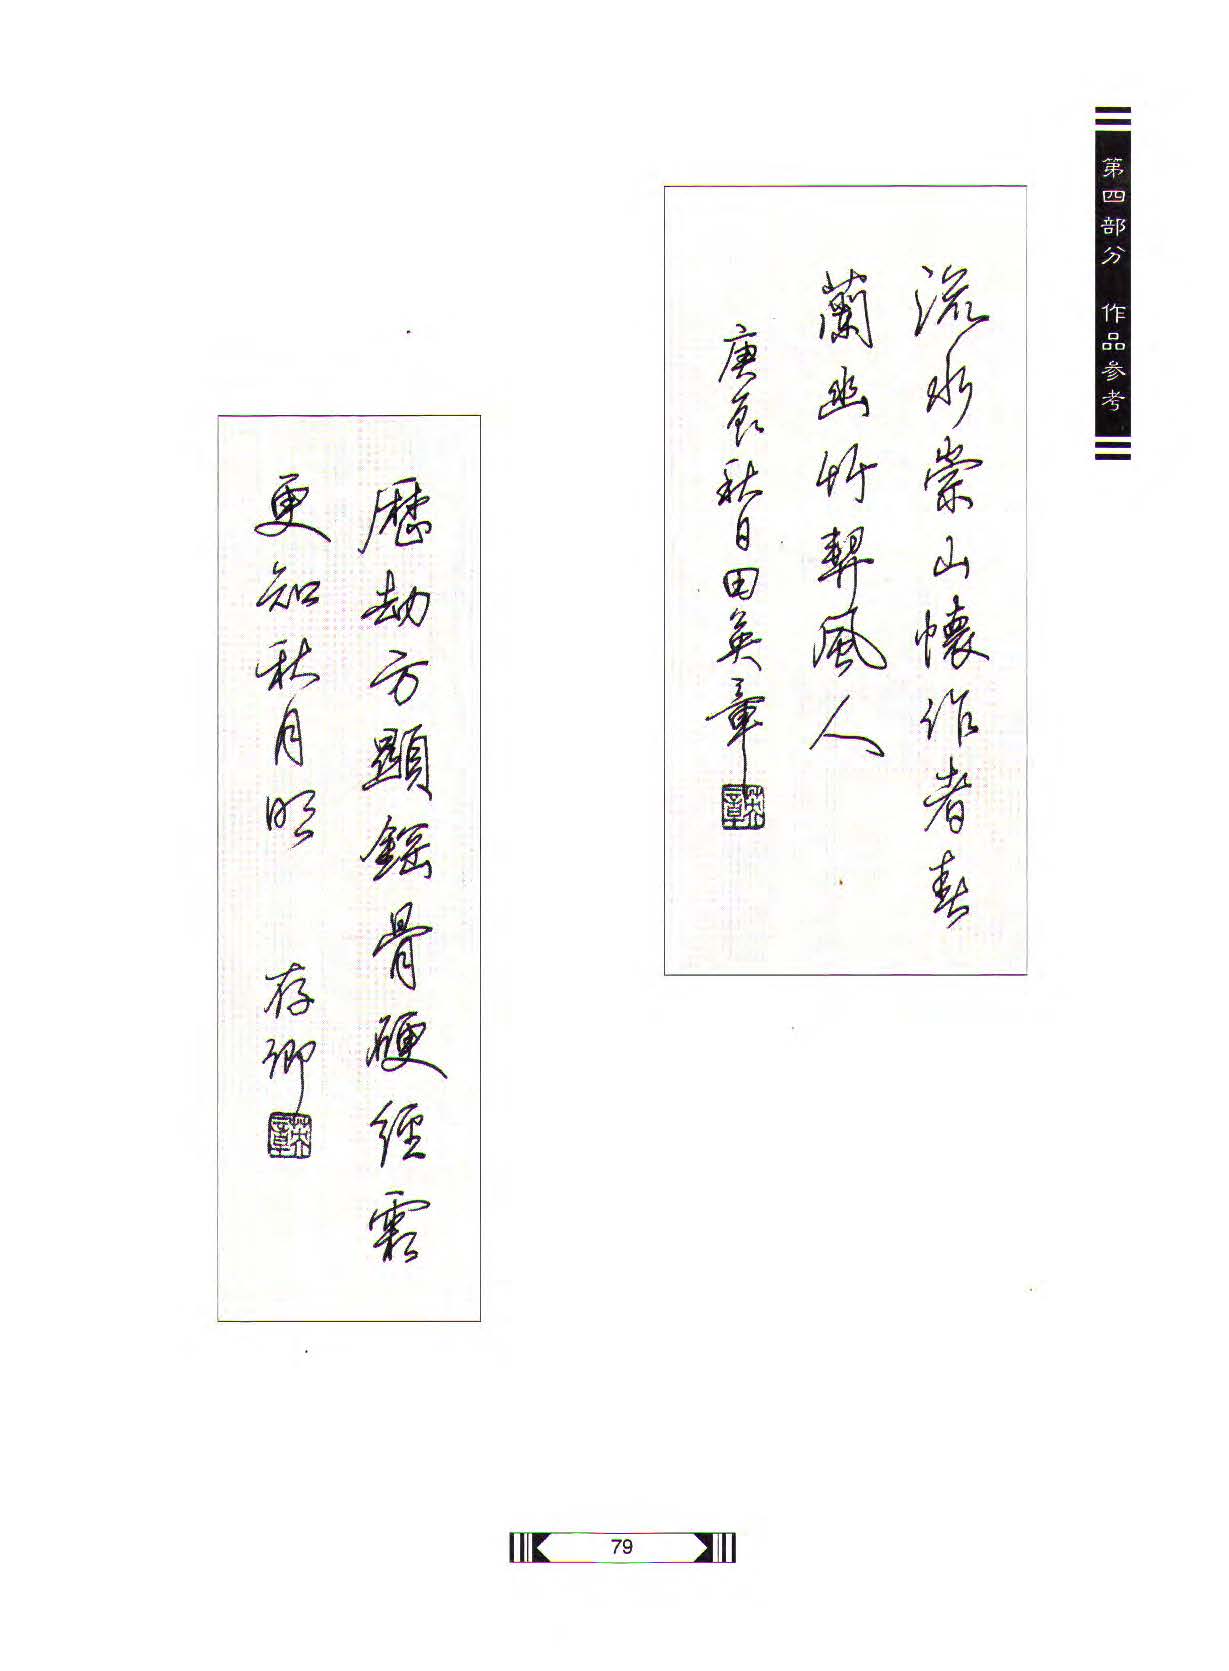 第四部分 作品参考
流水崇山懷作者春
蘭幽竹契風人
庚辰秋日田英章
英章
歷劫方顯鋼骨硬經霜
更知秋月明 存卿
英章
79